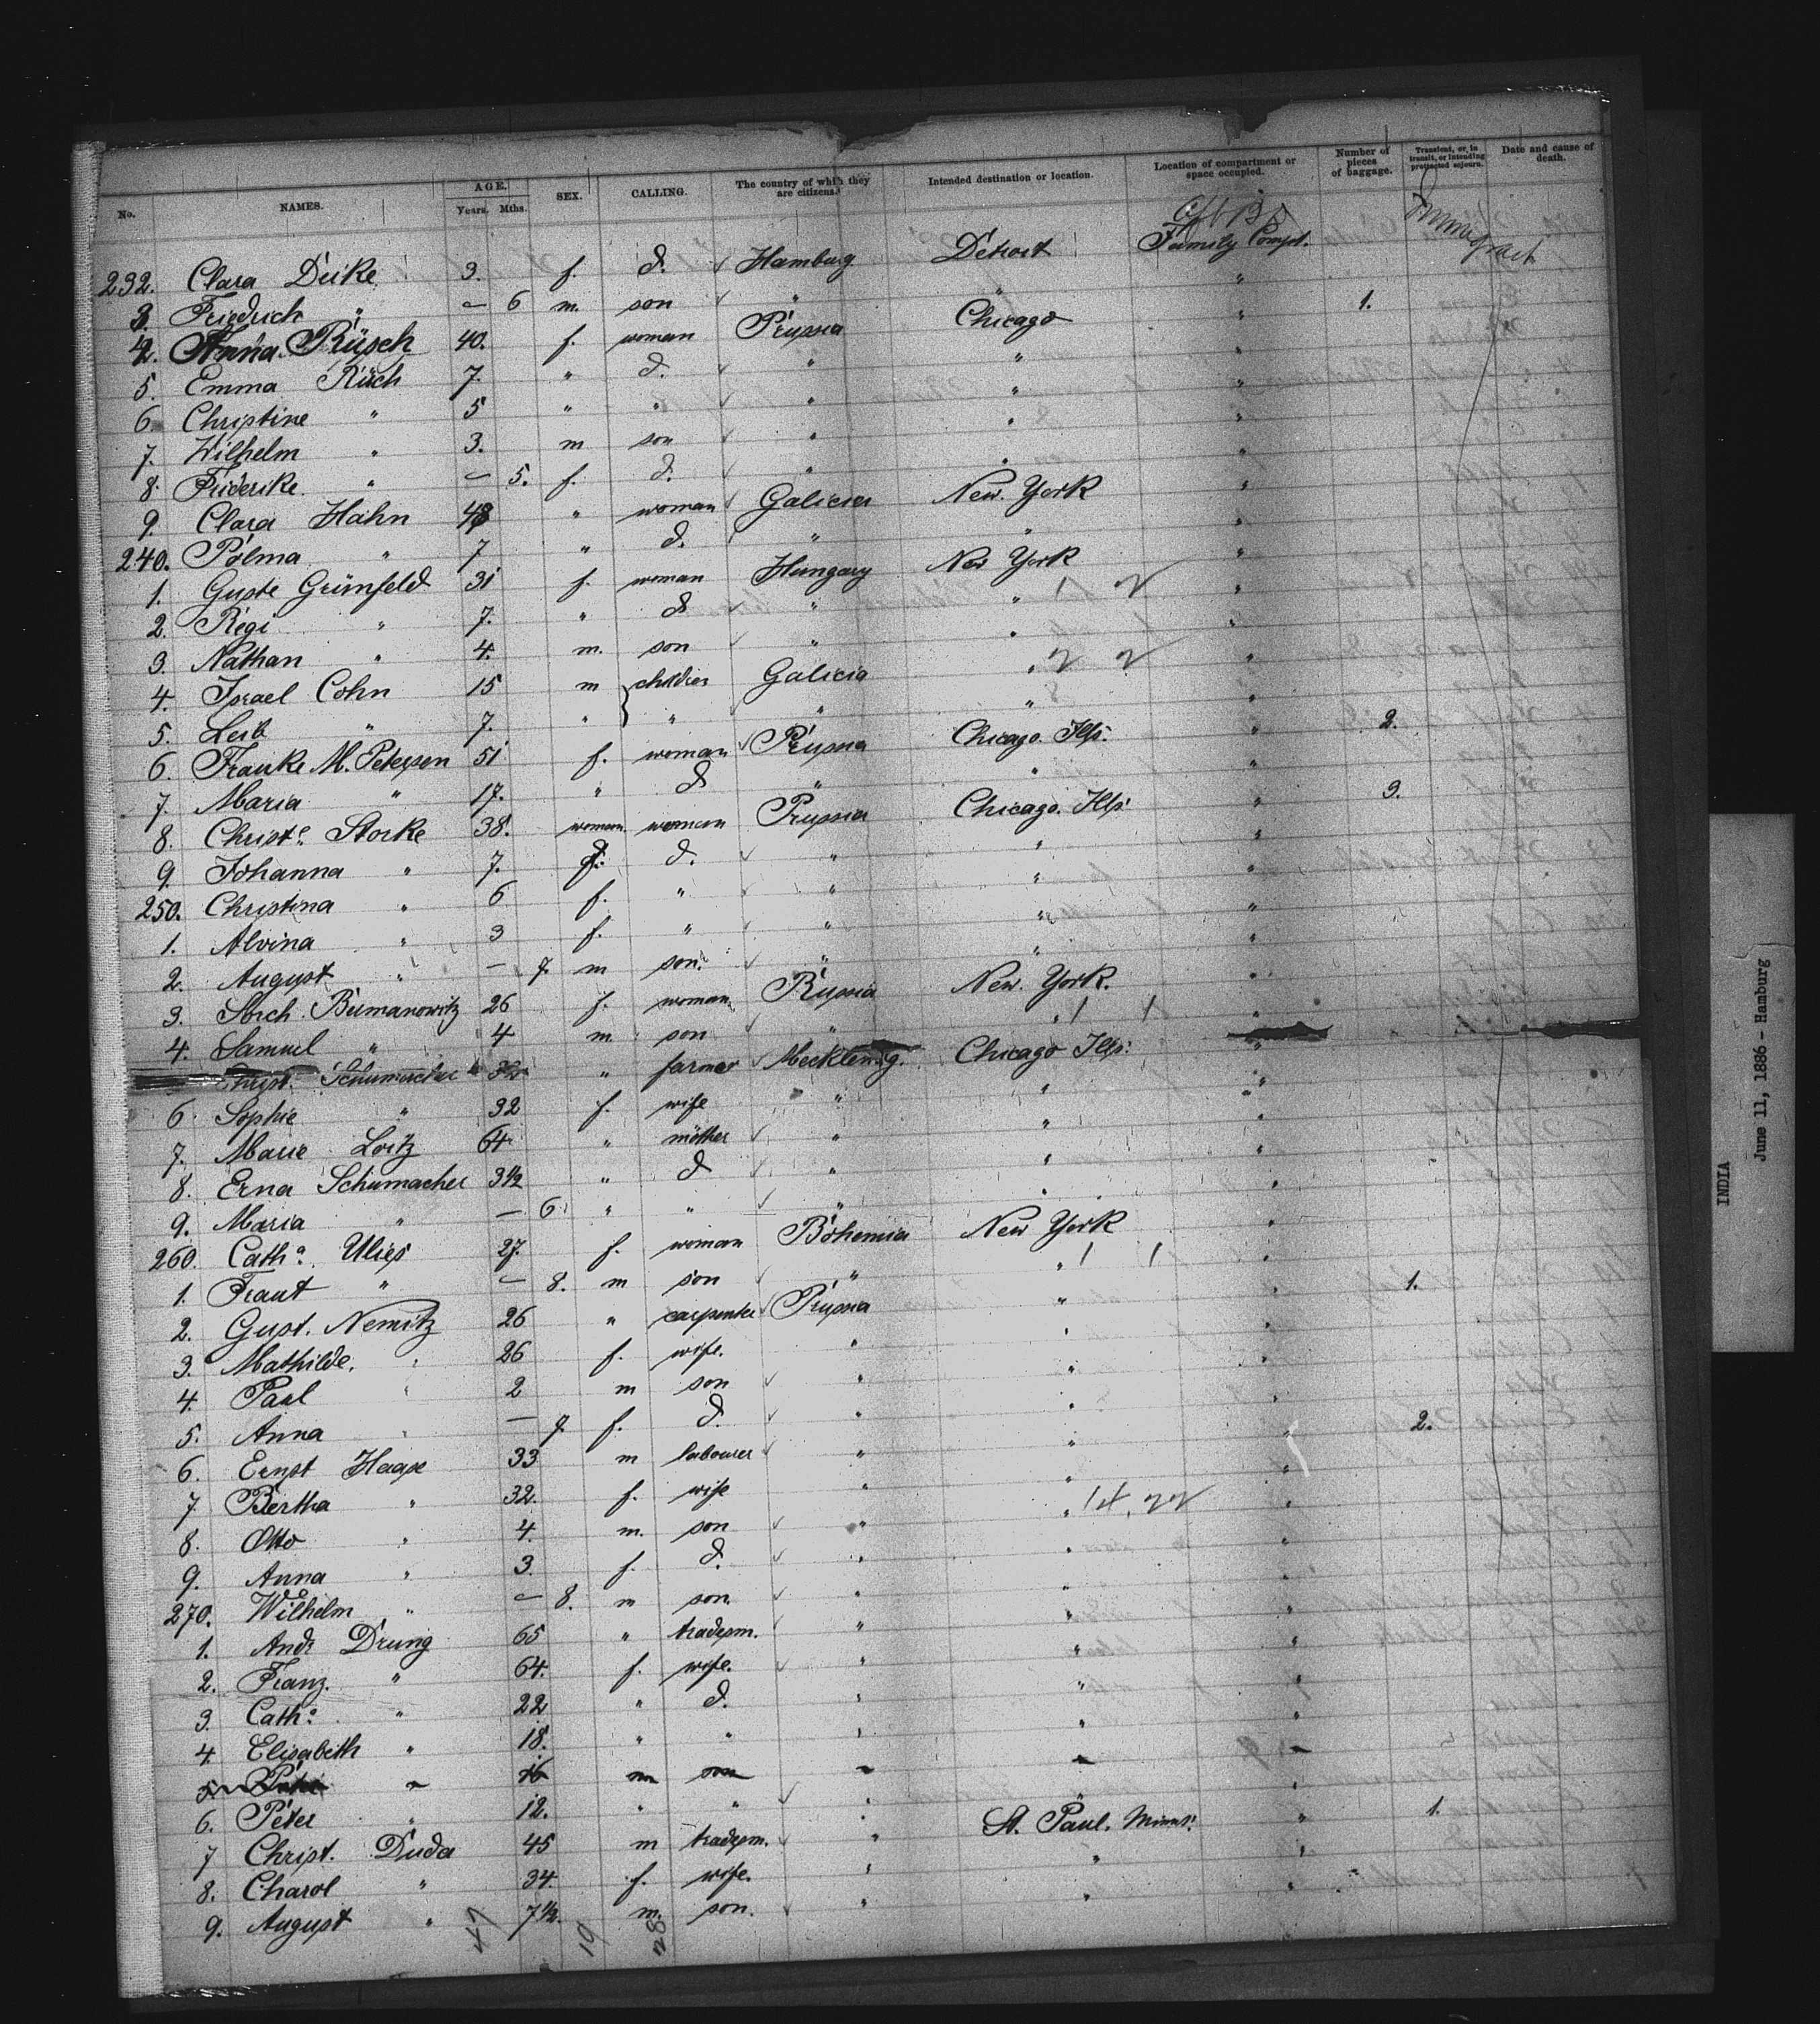 No. NAMES. AGE. Years. Mths. SEX. CALLING. The country of which they are citizens. Intended destination or location. Location of compartment or space occupied. Number of pieces of baggage. Transient, or, in transit, or intending protracted sojourn. Date and cause of death.
232. Clara Deike 3. f. d. Hamburg Detroit Family Compt.
3. Friedrich " — 6 m. son " " " 1.
4. Anna Rüsch 40. f. woman Prussia Chicago "
5. Emma Rüch 7. " d. " " "
6. Christine " 5 " " " " "
7. Wilhelm " 3. m son " " "
8. Friderike " — 5. f. d. " " "
9. Clara Hahn 48 " woman Galicia New York "
240. Polma " 7 " d. " " "
1. Guste Grünfeld 31 f. woman Hungary New York "
2. Regi " 7. " d " " "
3. Nathan " 4. m. son " " "
4. Israel Cohn 15 m children Galicia " "
5. Leib " 7. " " " " "
6. Frauke M. Petersen 51 f. woman Prussia Chicago. Ills. " 2.
7. Maria " 17. " d " " "
8. Christe. Storke 38. woman woman Prussia Chicago. Ills. " 3.
9. Johanna " 7. f. d. " " "
250. Christina " 6 f. " " " "
1. Alvina " 3 f. " " " "
2. August " — 7. m son. " " "
3. Sorch Bumanowitz 26 f. woman Russia New. York. "
4. Samuel " 4 m son " " "
Christ. Schumacher " farmer Mecklenbg. Chicago Ills. "
6. Sophie " 32 f. wife " " "
7. Marie Loitz 64 " mother " " "
8. Erna Schumacher 3½ " d " " "
9. Maria " — 6 " " " " "
260. Catha. Ulies 27. f. woman Bohemia New York "
1. Fraut " — 8. m son " " "
2. Gust. Nemitz 26 " carpenter Prussia " " 1.
3. Mathilde. " 26 f. wife. " " "
4. Paul " 2 m son " " "
5. Anna " — 9. f. d. " " "
6. Ernst Haase 33 m labourer " " " 2.
7. Bertha " 32. f. wife " " "
8. Otto " 4. m. son " " "
9. Anna " 3. f. d. " " "
270. Wilhelm " — 8. m son. " " "
1. Andr Drung 65 " tradesm. " " "
2. Franz. " 64. f. wife. " " "
3. Catha. " 22 " d. " " "
4. Elisabeth " 18. " " " " "
5. " 16 m son " " "
6. Peter " 12. " " " " "
7 Christ. Duda 45 m tradesm. " St. Paul. Minns. " 1.
8. Charol " 34. f. wife. " " "
9. August " 7½. m. son. " " "
47 19 28
INDIA
June 11, 1886 - Hamburg